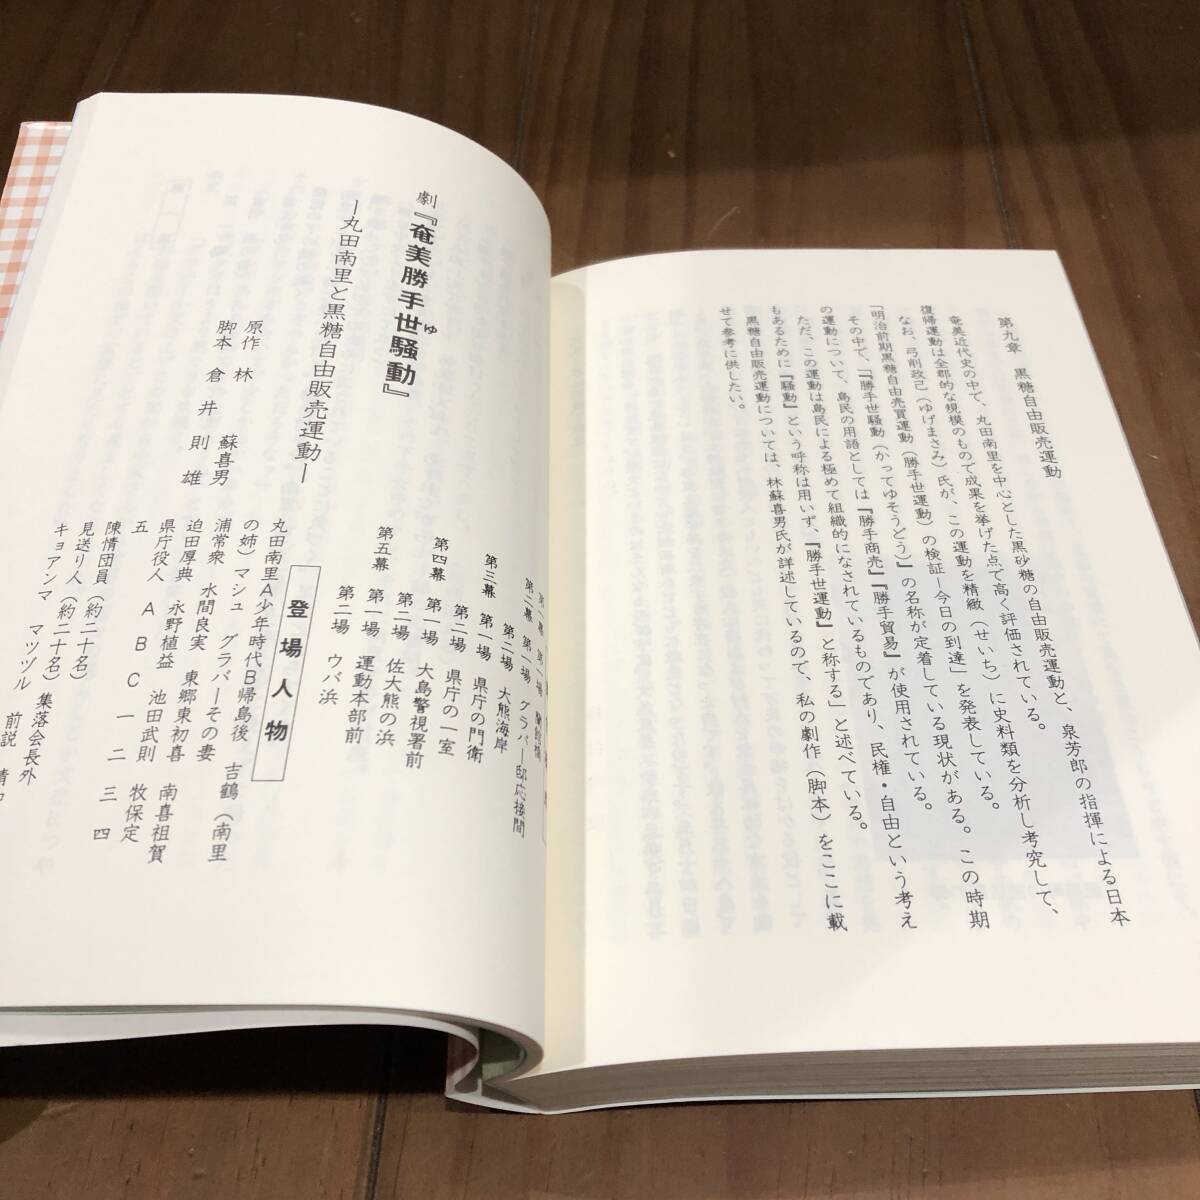 第九章　黒糖自由販売運動
奄美近代史の中で、丸田南里を中心とした黒砂糖の自由販売運動と、泉芳郎の指揮による日本
復帰運動は全郡的な規模のもので成果を挙げた点で高く評価されている。
なお、弓削政己（ゆげまさみ）氏が、この運動を精緻（せいち）に史料類を分析し考究して、
「明治前期黒糖自由売買運動（勝手世運動）の検証―今日の到達」を発表している。
その中で、「『勝手世騒動（かってゆそうどう）』の名称が定着している現状がある。この時期
の運動について、島民の用語としては『勝手商売』『勝手貿易』が使用されている。
ただ、この運動は島民による極めて組織的になされているものであり、民権・自由という考え
もあるために『騒動』という呼称は用いず、『勝手世運動』と称する」と述べている。
黒糖自由販売運動については、林蘇喜男氏が詳述しているので、私の劇作（脚本）をここに載
せて参考に供したい。
劇『奄美勝手世騒動』
ゆ
―丸田南里と黒糖自由販売運動―
原作　林　蘇喜男
脚本　倉井則雄
第二幕　第一場　グラバー邸応接間
第二場　大熊海岸
第三幕　第一場　県庁の門衛
第二場　県庁の一室
第四幕　第一場　大島警視署前
第二場　佐大熊の浜
第五幕　第一場　運動本部前
第二場　ウバ浜
登場人物
丸田南里A少年時代B帰島後　吉鶴（南里
の姉）マシュ　グラバーその妻
浦常衆　水間良実　東郷東初喜　南喜祖賀
迫田厚典　永野植益　池田武則　牧保定
県庁役人　A　B　C　一　二　三　四
五
陳情団員（約二十名）
見送り人（約二十名）　集落会長外
キョアンマ　マツヅル　前説